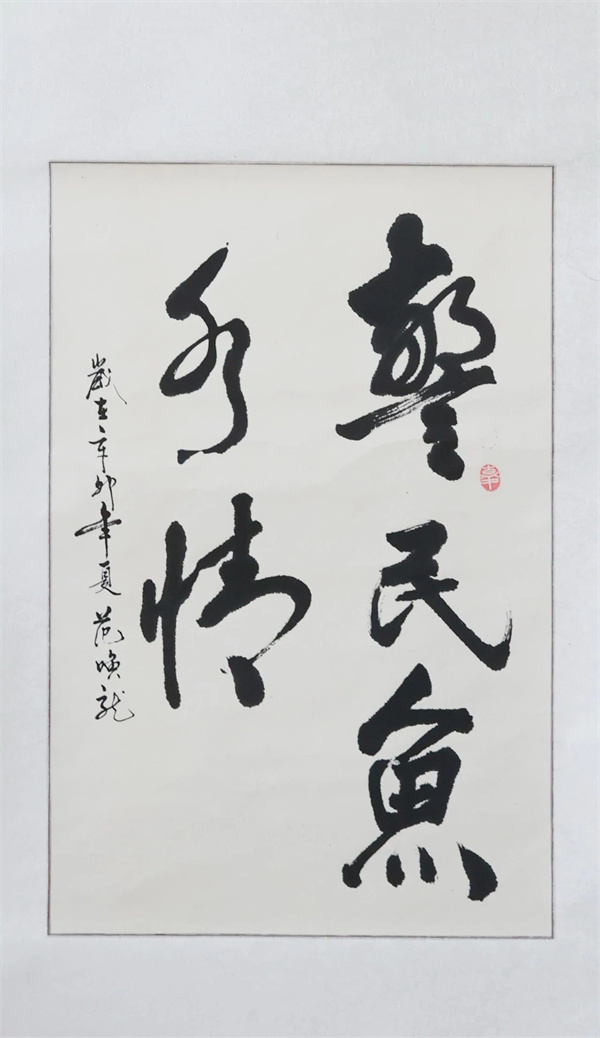 警民魚
水情
歲在辛卯年夏 范喚龍